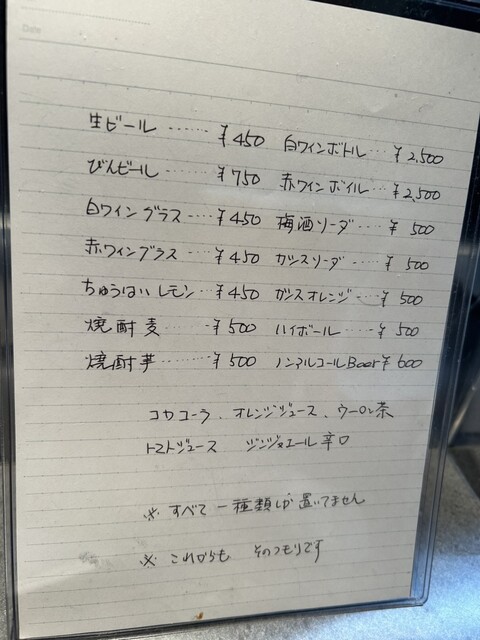 Date
生ビール ‥‥‥ ¥450 白ワインボトル‥‥ ¥2,500
びんビール ‥‥‥ ¥750 赤ワインボイル‥‥ ¥2,500
白ワイングラス‥‥ ¥450 梅酒ソーダ‥‥ ¥500
赤ワイングラス‥‥ ¥450 カシスソーダ‥‥ ¥500
ちゅうはいレモン‥‥ ¥450 カシスオレンジ‥‥ ¥500
焼酎麦 ‥‥‥ ¥500 ハイボール‥‥ ¥500
焼酎芋‥‥‥‥ ¥500 ノンアルコールBeer ¥600
コカコーラ、オレンジジュース、ウーロン茶
トマトジュース ジンジャエール辛口
※ すべて一種類しか置いてません
※ これからも そのつもりです